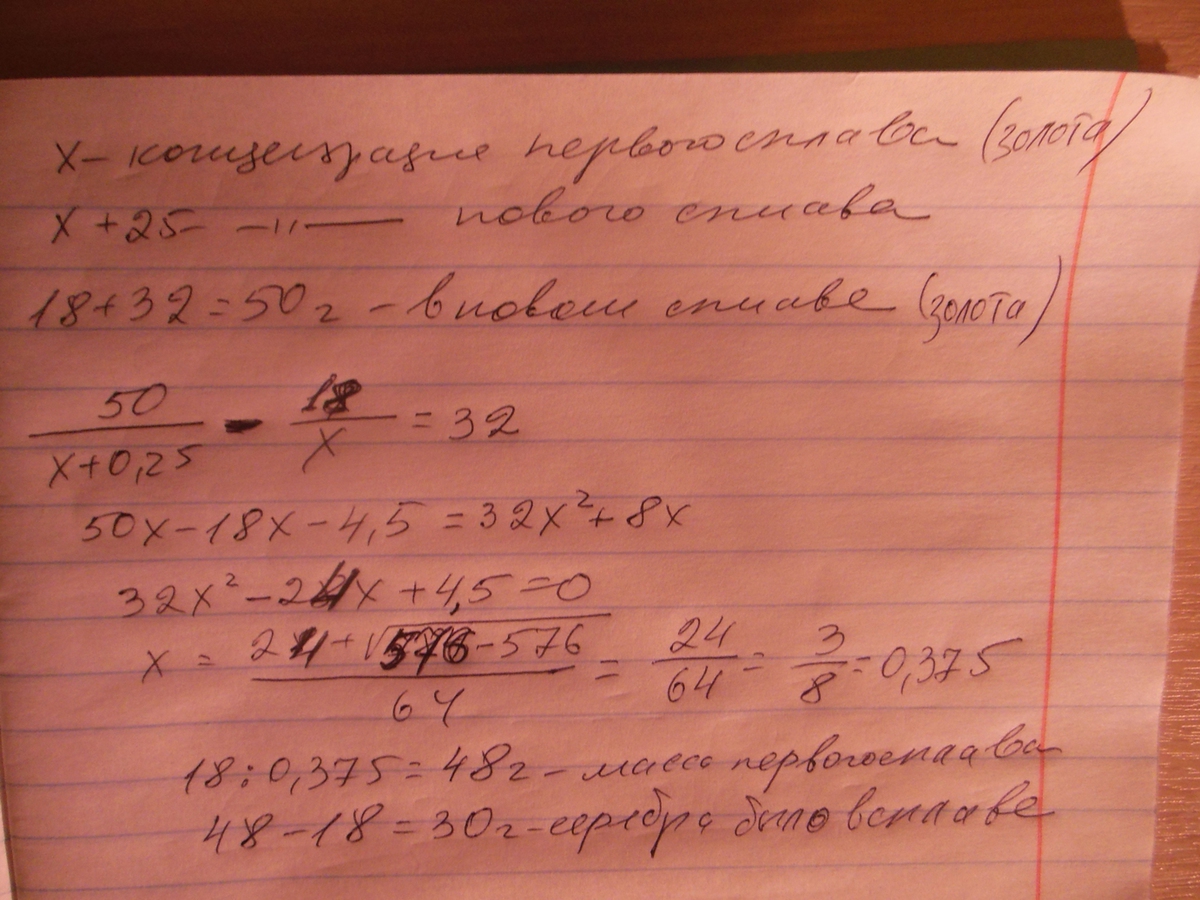 х – концентрация первого сплава (золота)
х + 25 – –"–— нового сплава
18+32=50г – в новом сплаве (золота)
50/(х+0,25) - 18/х = 32
50х – 18х – 4,5 = 32х² + 8х
32х² – 24х + 4,5 = 0
х = (24 + √(576 – 576))/64 = 24/64 = 3/8 = 0,375
18 : 0,375 = 48г – масса первого сплава
48 – 18 = 30г – серебра было в сплаве